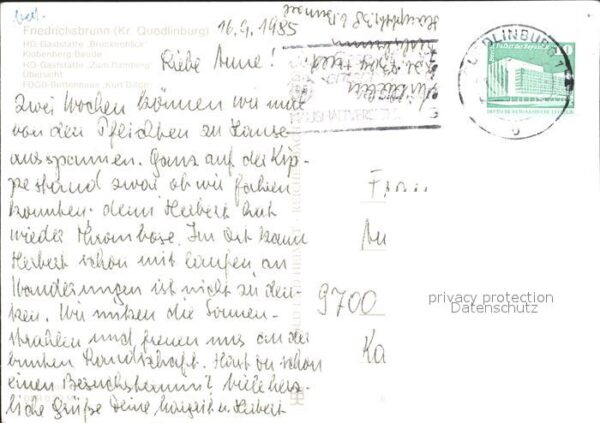 Friedrichsbrunn (Kr. Quedlinburg)
HO-Gaststätte „Brockenblick“
Klobenberg-Baude
KO-Gaststätte „Zum Ramberg“
Übersicht
FDGB-Bettenhaus
16.9.1985
Liebe Anne!
Zwei Wochen können wir mal
von den Pflichten zu Hause
ausspannen. Ganz auf der Kip-
pe stand zwar ob wir fahren
konnten, denn Herbert hat
wieder Thrombose. Im Ort kann
Herbert schon mit laufen, an
Wanderungen ist nicht zu den-
ken. Wir nutzen die Sonnen-
strahlen und freuen uns an der
bunten Landschaft. Hast du schon
einen Besuchstermin? Viele herz-
liche Grüße Deine Margit u. Herbert
QUEDLINBURG 1
Palast der Republik
10
Frau
Au
9700
Ka
privacy protection
Datenschutz